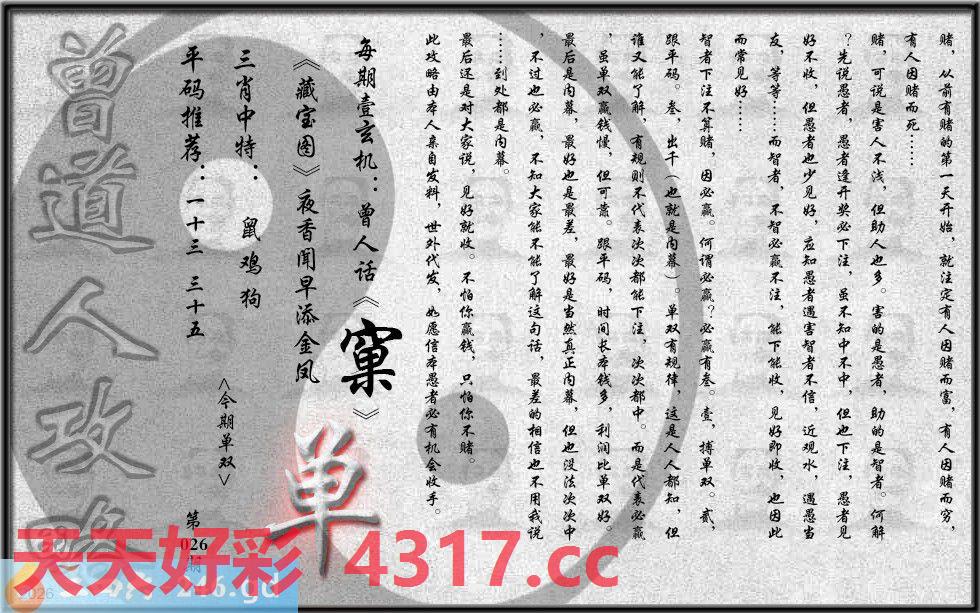 赌，从前有赌的第一天开始，就注定有人因赌而富，有人因赌而穷，
有人因赌而死……
赌，可说是害人不浅，但助人也多。害的是愚者，助的是智者。何解
？先说愚者，愚者逢开奖必下注，虽不知中不中，但也下注，愚者见
好不收，但愚者也少见好，应知愚者遇害智者不信，近观水，遇愚当
友，等等……而智者，不智必赢不注，能下能收，见好即收，也因此
而常见好……
智者下注不算赌，因必赢。何谓必赢？必赢有叁。壹，搏单双。贰，
跟平码。叁，出千（也就是内幕）。单双有规律，这是人人都知，但
谁又能了解，有规则不代表次次都能下注，次次都中。而是代表必赢
，虽单双赢钱慢，但可靠。跟平码，时间长本钱多，利润比单双好。
最后是内幕，最好也是最差，最好是当然真正内幕，但也没法次次中
，不过也必赢，不知大家能不能了解这句话，最差的相信也不用我说
……到处都是内幕。
最后还是对大家说，见好就收。不怕你赢钱，只怕你不赌。
此攻略由本人亲自发料，世外代发，如愿信本愚者必有机会收手。
每期壹玄机：曾人话《窠》
《藏宝图》夜香闻早添金凤
三肖中特：鼠 鸡 狗
平码推荐：一十三 三十五
<今期单双>
单
第
026
期
曾道人攻略
天天好彩 4317.cc